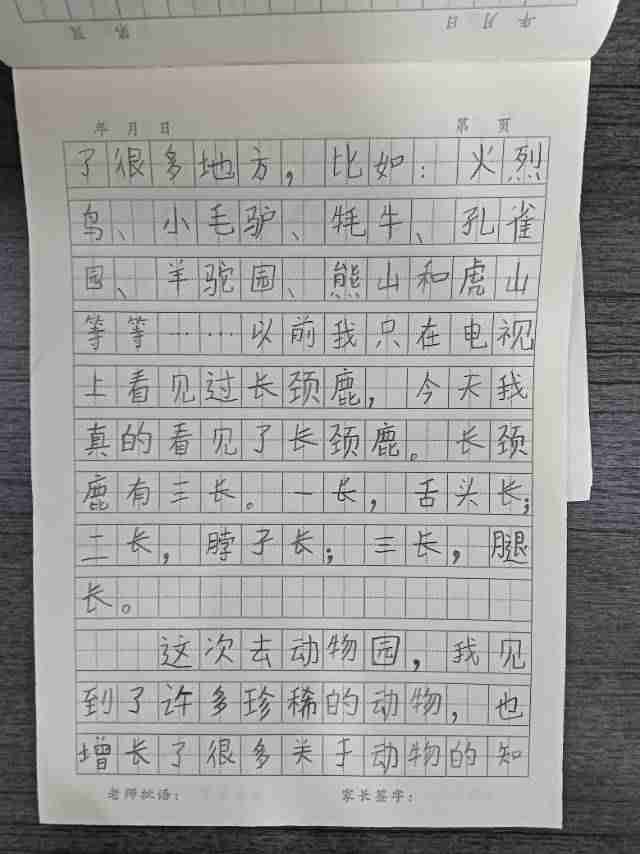 第 页 年 月 日
年 月 日 第 页
了很多地方，比如：火烈
鸟、小毛驴、牦牛、孔雀
园、羊驼园、熊山和虎山
等等……以前我只在电视
上看见过长颈鹿，今天我
真的看见了长颈鹿。长颈
鹿有三长。一长，舌头长；
二长，脖子长；三长，腿
长。
这次去动物园，我见
到了许多珍稀的动物，也
增长了很多关于动物的知
老师批语： 家长签字：